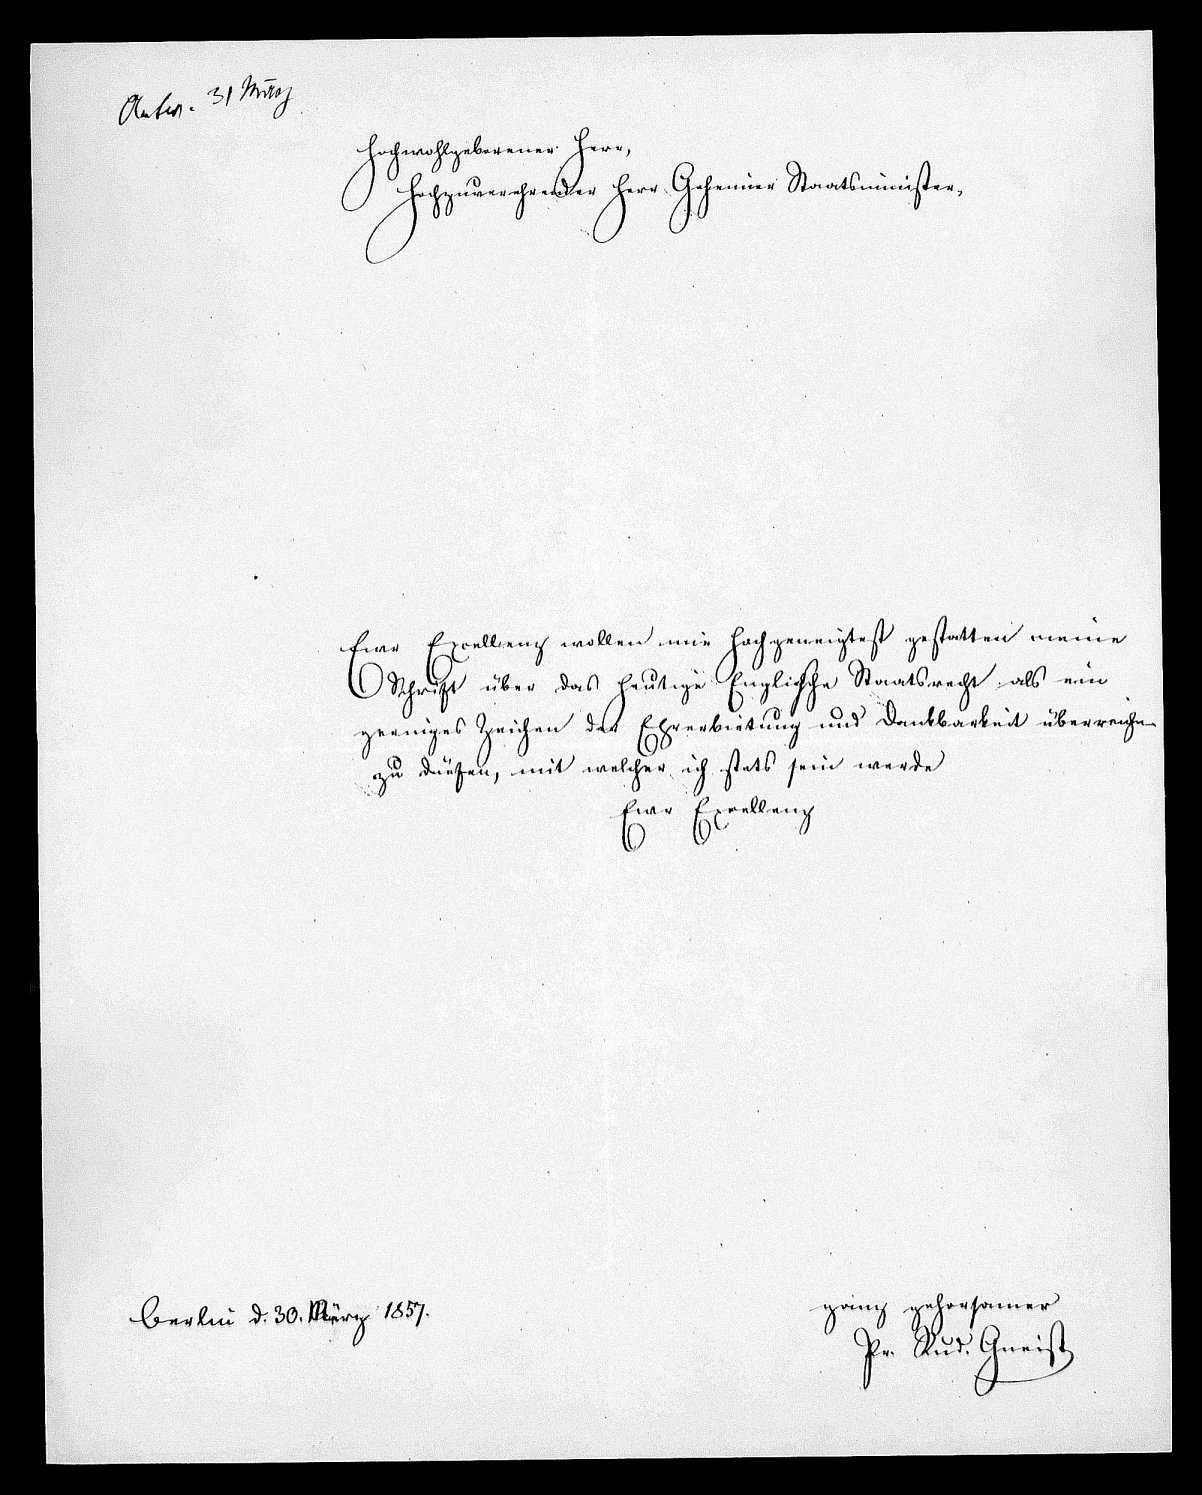 Antw. 31 März
Hochwohlgeborener Herr,
Hochzuverehrender Herr Geheimer Staatsminister,
Eure Excellenz wollen mir hochgeneigtest gestatten meine
Schrift über das heutige Englische Staatsrecht als ein
geringes Zeichen der Ehrerbietung und Dankbarkeit überreichen
zu dürfen, mit welcher ich stets sein werde
Eurer Excellenz
Berlin d. 30. März 1857.
ganz gehorsamer
Pr. Rud. Gneist